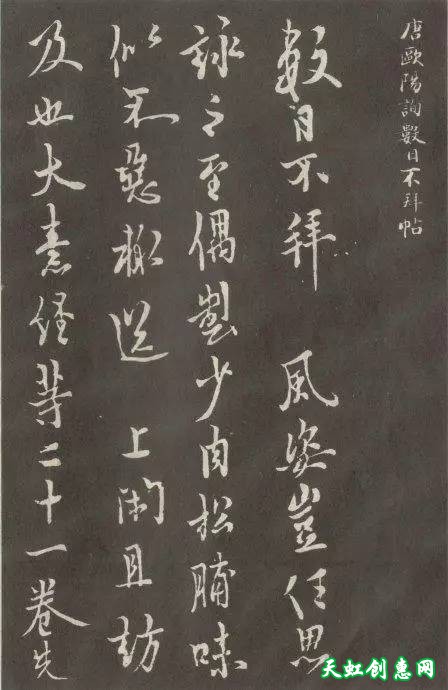 唐歐陽詢數日不拜帖
數日不拜 風姿豈任思
詠之至偶製少肉松脯味
似不惡輒送 上閑且訪
及也大素經等二十一卷先
天虹创意网